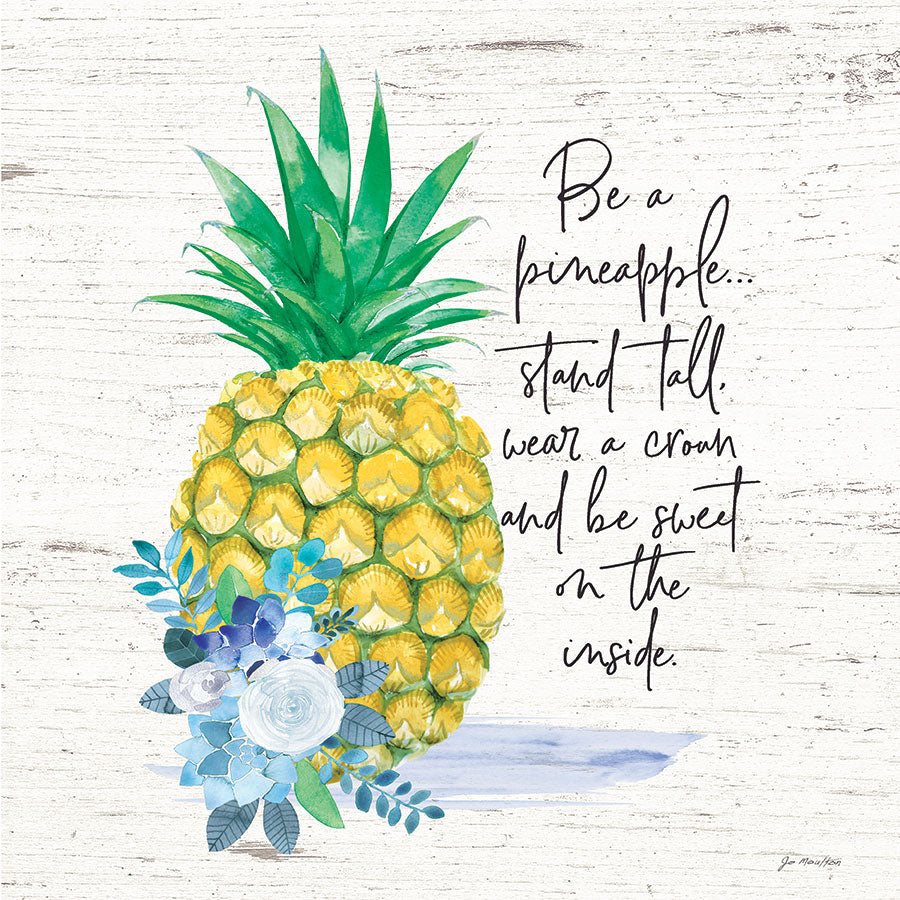 Be a
pineapple...
stand tall,
wear a crown
and be sweet
on the
inside.
Jo Moulton